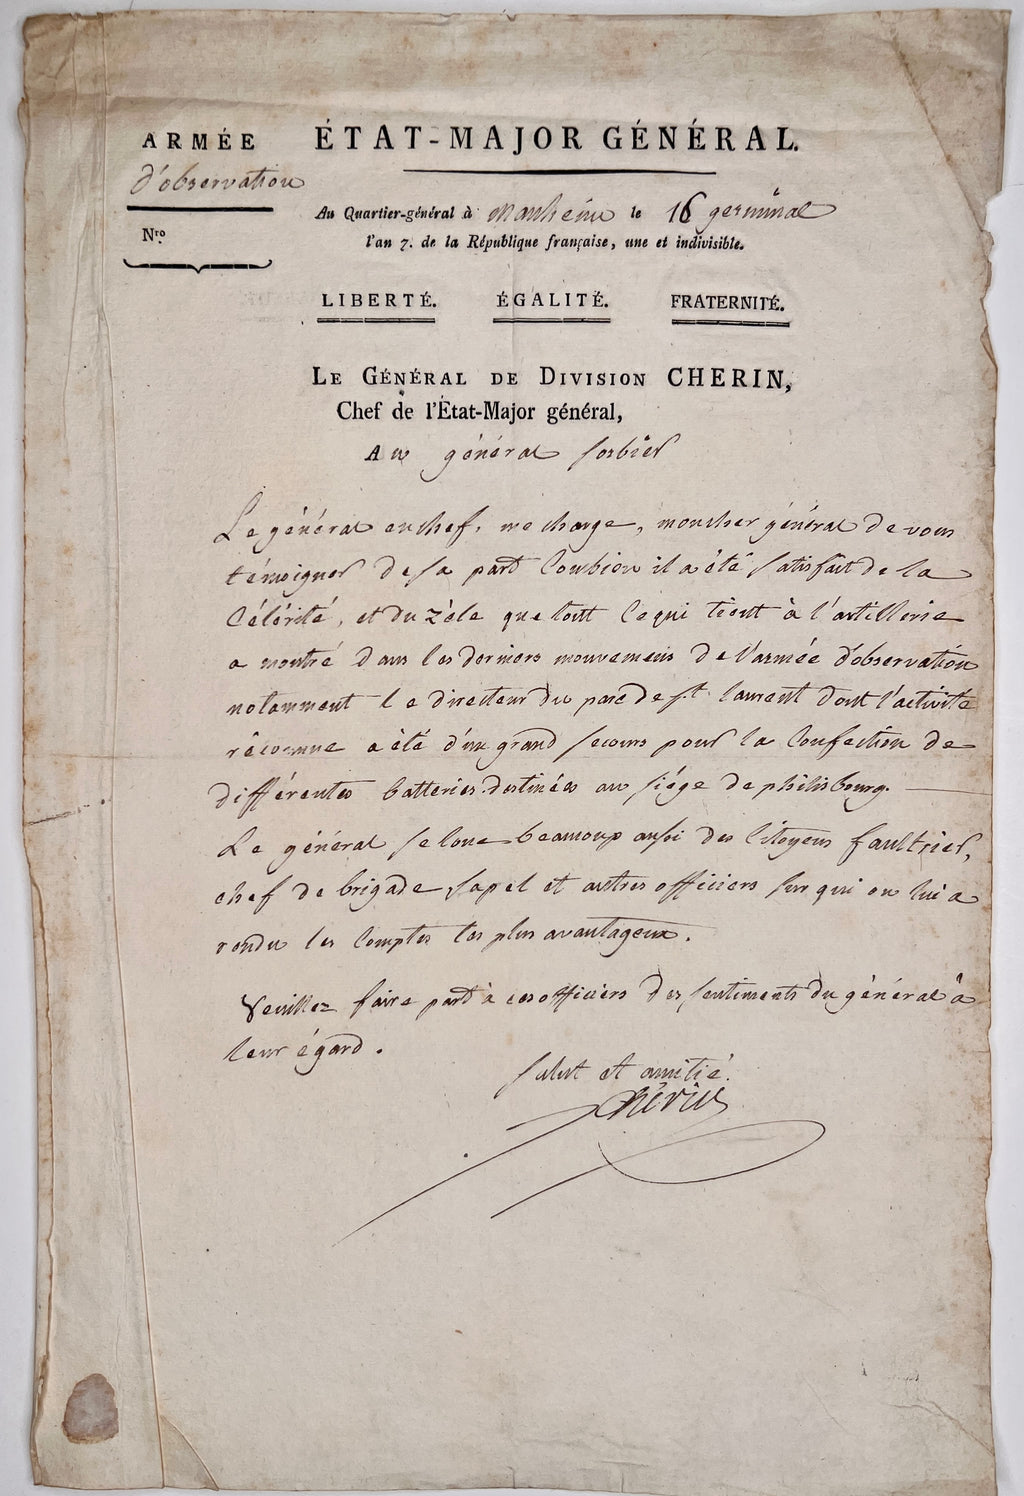 ARMÉE
d'observation
Nro.
ÉTAT-MAJOR GÉNÉRAL.
Au Quartier-général à Manheim le 16 germinal
l'an 7. de la République française, une et indivisible.
LIBERTÉ. ÉGALITÉ. FRATERNITÉ.
LE GÉNÉRAL DE DIVISION CHERIN,
Chef de l'État-Major général,
Au général sorbier
Le général en chef, me charge, mon cher général de vous
témoigner de sa part combien il a été satisfait de la
célérité, et du zèle que tout ce qui tient à l'artillerie
a montré dans les derniers mouvemens de l'armée d'observation
notamment le directeur du parc de st. laurent dont l'activité
reconnue a été d'un grand secours pour la confection de
différentes batteries destinées au siége de philisbourg.
Le général se loue beaucoup aussi des citoyens faultrier,
chef de brigade, sapel et autres officiers sur qui on lui a
rendu les comptes les plus avantageux.
Veuillez faire part à ces officiers des sentiments du général à
leur égard.
salut et amitié.
Chérin